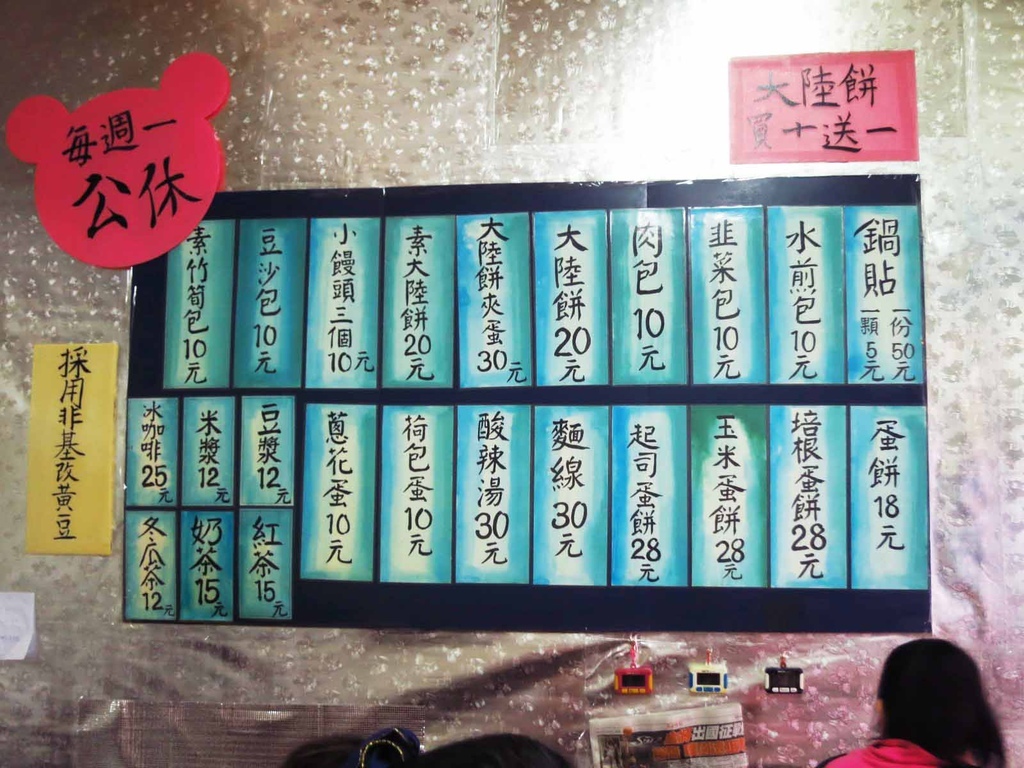 每週一
公休
大陸餅
買十送一
鍋貼
一份50元
一顆5元
水煎包10元
韭菜包10元
肉包10元
大陸餅20元
大陸餅夾蛋30元
素大陸餅20元
小饅頭三個10元
豆沙包10元
素竹筍包10元
蛋餅18元
培根蛋餅28元
玉米蛋餅28元
起司蛋餅28元
麵線30元
酸辣湯30元
荷包蛋10元
蔥花蛋10元
豆漿12元
米漿12元
冰咖啡25元
紅茶15元
奶茶15元
冬瓜茶12元
採用非基改黃豆